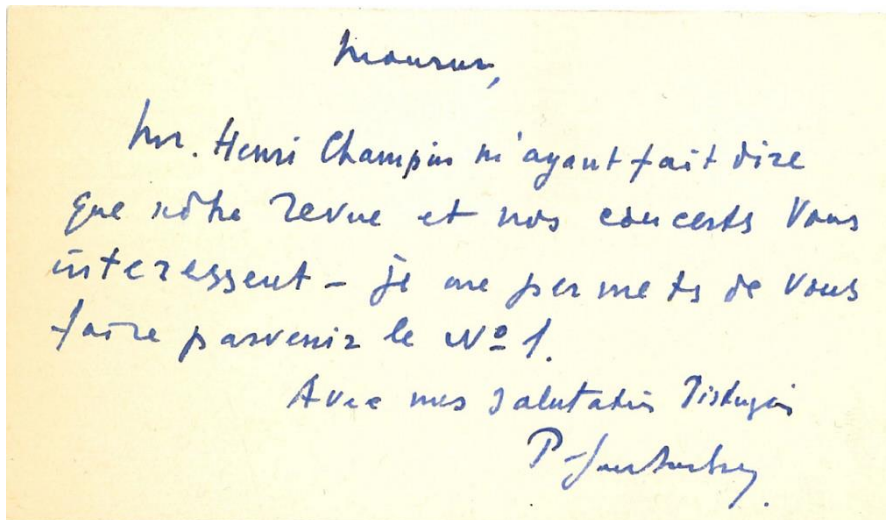 Monsieur,
Mr. Henri Champin m'ayant fait dire
que nôtre revue et nos concerts Vous
interessent – je me permets de Vous
faire parvenir le Nº 1.
Avec mes salutations Distingués
P.